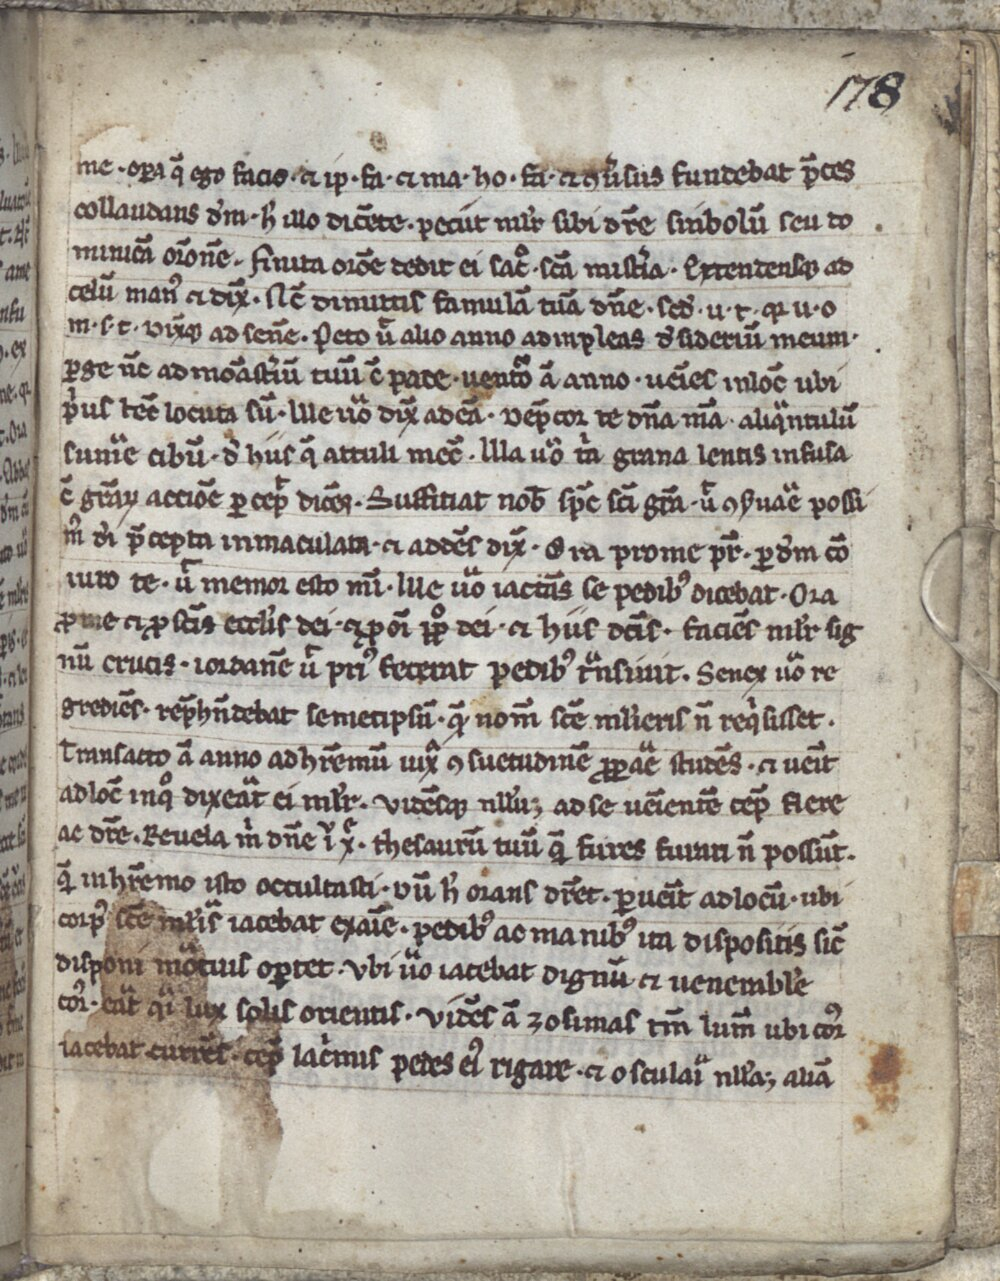 178
me · oꝑa q̄ ego facio · ⁊ ip̄ · fa · ⁊ ma · ho · fa · ⁊ ꝯuͥsus fundebat p̄ces
collaudans dm̄ · h̄ illo dicēte · peciit mlr̄ sibi dr̄e sinbolū seu do
minicā orōnē · finita orōe dedit ei sac̊ · scā mist̾ia · Extendensqꝫ ad
celū man᷒ ⁊ dix̄ · Nc̄ dimittis famulā tuā dn̄e · scd̄ · u · t · qr u · o
m · s · t · vix̄qꝫ ad senē · Peto ū alio anno adinpleas d̾siderium meum ·
ꝑge nc̄ ad moāst̾iū tuū ī pace · uentō ā anno · ueīes in locū ubi
p̾us tec̄ locuta sū · Ille u̾o dix̄ ad eā · vep̄cor te dn̄a mā · aliqͣntulū
sumͤe cibū · d̾ hiis q̄ attuli mec̄ · Illa u̾o tͥa grana lentis infusa
ī gr̄aꝝ accioē ꝑcep̄ dicēs · Suffitiat nob̄ sp̄c sc̄i gr̄a · ū ꝯs̾uāe possi
m̄ di p̄cepta inmaculata · ⁊ addēs dix̄ · Ora pro me pr̄ · ꝑ dm̄ cō
iuro te · ū memor esto mī · Ille u̾o iactās se pedib᷒ dicebat · Ora
ꝓ me ⁊ ꝓ sc̄is eccl̄is dei · ⁊ ꝓ oī ppl̊o dei · ⁊ hiis dc̄is · faciēs mlr̄ sig
nū crucis · iordanē ū pri᷒ fecerat pedib᷒ tͣnsiuit · Senex u̾o re
grediēs · rep̄hn̄debat semetipsū · qͣ nom̄ sc̄e mlieris n̄ reqͥsisset ·
Transacto ā anno ad hr̄emū iux̄ ꝯsuetudinē ꝓpāe studēs · ⁊ ueīt
ad locū inq̊ dixeāt ei mlr̄ · vidēsqꝫ nlluꝫ ad se ueīentē cep̄ flere
ac dr̄e · Reuela m̄ dn̄e ı̄ x̄ · thesaurū tuū q̄ fures furari n̄ possūt ·
q̄ in hr̄emo isto occultasti · vū h̄ orans dr̄et · ꝑueīt ad locū · ubi
corp᷒ sc̄e mlis iacebat exaīe · pedib᷒ ac manib᷒ ita dispositis sic̄
disponi moͬtuis oꝑtet · vbi u̾o iacebat dignū ⁊ uenerabl̾e
cor̄ · eāt qͣi lux solis orientis · vidēs ā zosimas tm̄ lum̄ ubi cor̄
iacebat currēs · cep̄ lacͥmis pedes ei᷒ rigare · ⁊ osculaͬi nllaꝫ aliā